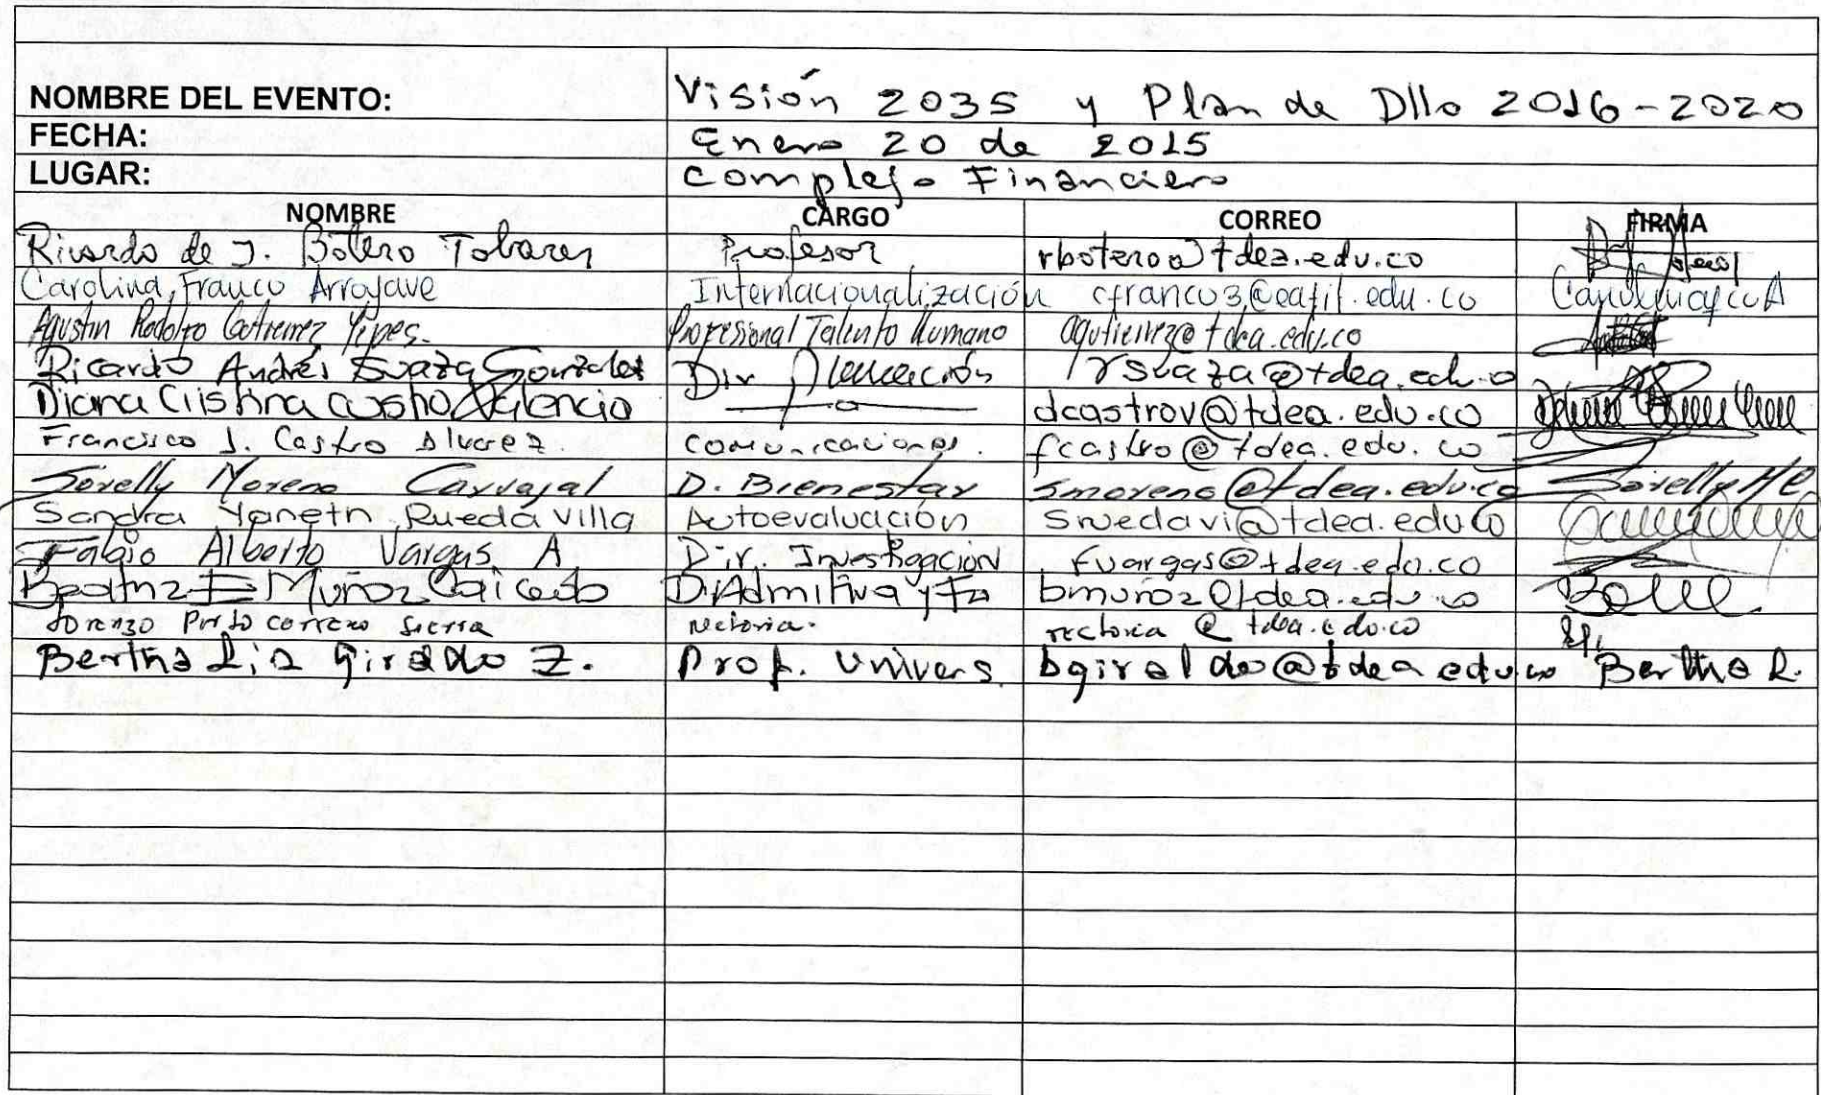 NOMBRE DEL EVENTO: Visión 2035 y Plan de Dllo 2016-2020
FECHA: Enero 20 de 2015
LUGAR: Complejo Financiero
NOMBRE CARGO CORREO FIRMA
Ricardo de J. Botero Tabares Profesor rbotero@tdea.edu.co
Carolina Franco Arroyave Internacionalización cfranco3@eafit.edu.co
Agustin Rodolfo Gutierrez Yepes. Profesional Talento Humano agutierrez@tdea.edu.co
Ricardo Andrés Suaza Gonzalez Dir Planeación rsuaza@tdea.edu.co
Diana Cristina Castro Valencia dcastrov@tdea.edu.co
Francisco J. Castro Alvarez. Comunicaciones. fcastro@tdea.edu.co
Sorelly Moreno Carvajal D. Bienestar smoreno@tdea.edu.co Sorelly MC
Sandra Yaneth Rueda Villa Autoevaluación sruedavi@tdea.edu.co
Fabio Alberto Vargas A Dir. Investigación fvargas@tdea.edu.co
Beatriz E Muñoz Caicedo D. Admitiva y Fra bmunoz@tdea.edu.co
Lorenzo Portocarrero Sierra Rectoria. rectoria@tdea.edu.co
Bertha Lia Giraldo Z. Prof. Univers. bgiraldo@tdea.edu.co Bertha L.